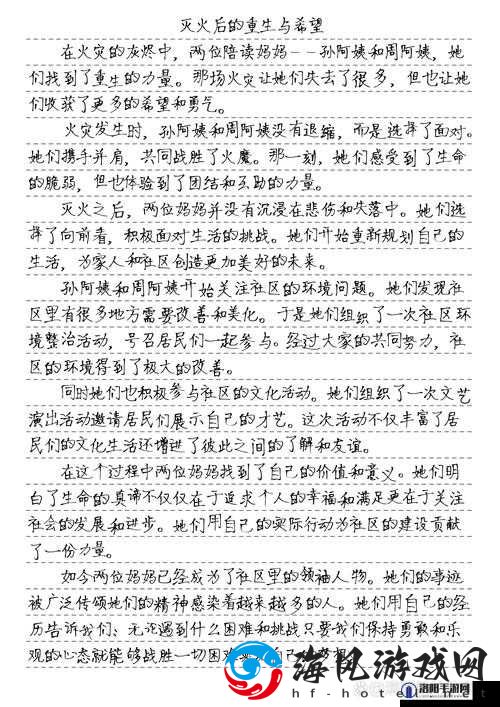 灭火后的重生与希望
在火灾的灰烬中，两位陪读妈妈--孙阿姨和周阿姨，她
们找到了重生的力量。那场火灾让她们失去了很多，但也让她
们收获了更多的希望和勇气。
火灾发生时，孙阿姨和周阿姨没有退缩，而是选择了面对。
她们携手并肩，共同战胜了火魔。那一刻，她们感受到了生命
的脆弱，但也体验到了团结和互助的力量。
灭火之后，两位妈妈并没有沉浸在悲伤和失落中。她们选
择了向前看，积极面对生活的挑战。她们开始重新规划自己的
生活，为家人和社区创造更加美好的未来。
孙阿姨和周阿姨开始关注社区的环境问题。她们发现社
区里有很多地方需要改善和美化。于是她们组织了一次社区环
境整治活动，号召居民们一起参与。经过大家的共同努力，社
区的环境得到了极大的改善。
同时她们也积极参与社区的文化活动。她们组织了一次文艺
演出活动邀请居民们展示自己的才艺。这次活动不仅丰富了居
民们的文化生活还增进了彼此之间的了解和友谊。
在这个过程中两位妈妈找到了自己的价值和意义。她们明
白了生命的真谛不仅仅在于追求个人的幸福和满足更在于关注
社会的发展和进步。她们用自己的实际行动为社区的建设贡献
了一份力量。
如今两位妈妈已经成为了社区里的领袖人物。她们的事迹
被广泛传颂她们的精神感染着越来越多的人。她们用自己的经
历告诉我们：无论遇到什么困难和挑战只要我们保持勇敢和乐
观的心态就能够战胜一切困难
海风游戏网
hf-hotel.net
洛阳手游网